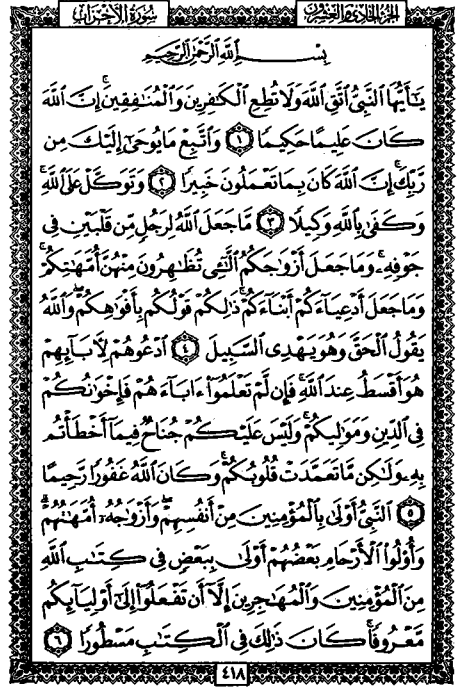 سُورَةُ الْأَحْزَابِ
الجُزْءُ الحَادِي وَالعِشْرُونَ
بِسْمِ ٱللَّهِ ٱلرَّحْمَٰنِ ٱلرَّحِيمِ
يَـٰٓأَيُّهَا ٱلنَّبِىُّ ٱتَّقِ ٱللَّهَ وَلَا تُطِعِ ٱلْكَـٰفِرِينَ وَٱلْمُنَـٰفِقِينَ ۗ إِنَّ ٱللَّهَ
كَانَ عَلِيمًا حَكِيمًا ١ وَٱتَّبِعْ مَا يُوحَىٰٓ إِلَيْكَ مِن
رَّبِّكَ ۚ إِنَّ ٱللَّهَ كَانَ بِمَا تَعْمَلُونَ خَبِيرًا ٢ وَتَوَكَّلْ عَلَى ٱللَّهِ ۚ
وَكَفَىٰ بِٱللَّهِ وَكِيلًا ٣ مَّا جَعَلَ ٱللَّهُ لِرَجُلٍ مِّن قَلْبَيْنِ فِى
جَوْفِهِۦ ۚ وَمَا جَعَلَ أَزْوَٰجَكُمُ ٱلَّـٰٓـِٔى تُظَـٰهِرُونَ مِنْهُنَّ أُمَّهَـٰتِكُمْ ۚ
وَمَا جَعَلَ أَدْعِيَآءَكُمْ أَبْنَآءَكُمْ ۚ ذَٰلِكُمْ قَوْلُكُم بِأَفْوَٰهِكُمْ ۖ وَٱللَّهُ
يَقُولُ ٱلْحَقَّ وَهُوَ يَهْدِى ٱلسَّبِيلَ ٤ ٱدْعُوهُمْ لِـَٔابَآئِهِمْ
هُوَ أَقْسَطُ عِندَ ٱللَّهِ ۚ فَإِن لَّمْ تَعْلَمُوٓا۟ ءَابَآءَهُمْ فَإِخْوَٰنُكُمْ
فِى ٱلدِّينِ وَمَوَٰلِيكُمْ ۚ وَلَيْسَ عَلَيْكُمْ جُنَاحٌ فِيمَآ أَخْطَأْتُم
بِهِۦ وَلَـٰكِن مَّا تَعَمَّدَتْ قُلُوبُكُمْ ۚ وَكَانَ ٱللَّهُ غَفُورًا رَّحِيمًا
٥ ٱلنَّبِىُّ أَوْلَىٰ بِٱلْمُؤْمِنِينَ مِنْ أَنفُسِهِمْ ۖ وَأَزْوَٰجُهُۥٓ أُمَّهَـٰتُهُمْ ۗ
وَأُو۟لُوا۟ ٱلْأَرْحَامِ بَعْضُهُمْ أَوْلَىٰ بِبَعْضٍ فِى كِتَـٰبِ ٱللَّهِ
مِنَ ٱلْمُؤْمِنِينَ وَٱلْمُهَـٰجِرِينَ إِلَّآ أَن تَفْعَلُوٓا۟ إِلَىٰٓ أَوْلِيَآئِكُم
مَّعْرُوفًا ۚ كَانَ ذَٰلِكَ فِى ٱلْكِتَـٰبِ مَسْطُورًا ٦
٤١٨